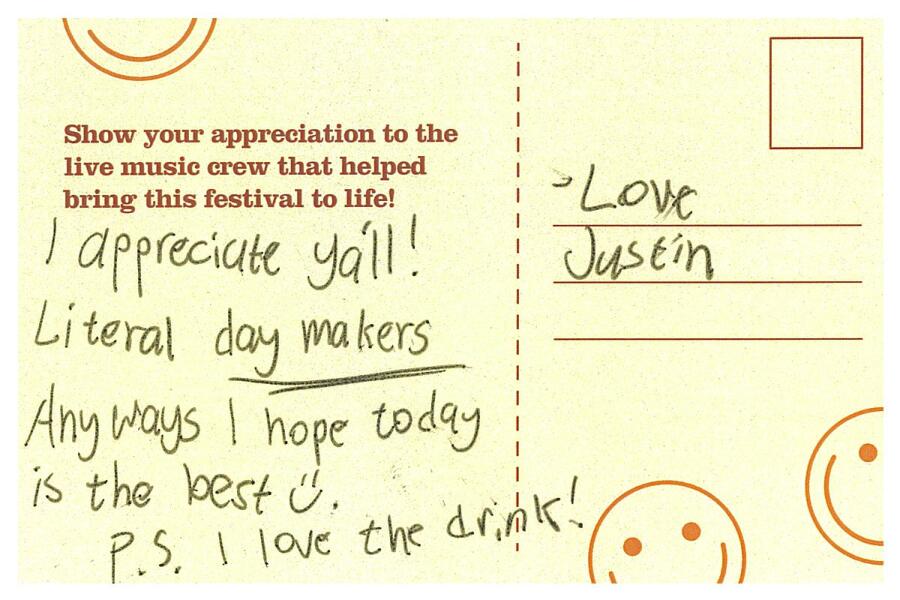 Show your appreciation to the
live music crew that helped
bring this festival to life!
I appreciate ya'll!
Literal day makers
Anyways I hope today
is the best ü.
P.S. I love the drink!
-Love
Justin